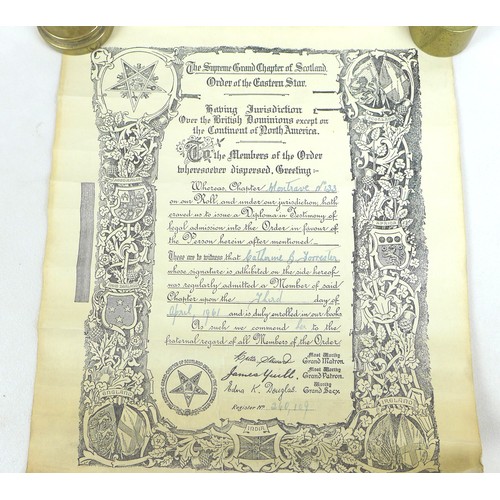 The Supreme Grand Chapter of Scotland,
Order of the Eastern Star.
Having Jurisdiction
Over the British Dominions except on
the Continent of North America.
To the Members of the Order
wheresoever dispersed, Greeting:-
Whereas, Chapter Montrave No 133
on our Roll, and under our jurisdiction; hath
craved us to issue a Diploma in Testimony of
legal admission into the Order in favour of
the Person herein after mentioned
These are to witness that Catherine B. Forrester
whose signature is adhibited on the side hereof
was regularly admitted a Member of said
Chapter upon the Third day of
April, 1961 and is duly enrolled in our books
As such we commend her to the
fraternal regard of all Members of the Order
Most Worthy
Grand Matron.
James
Most Worthy
Grand Patron.
Edna K. Douglas.
Worthy
Grand Secy.
Register No 260,119
ENGLAND
INDIA
IRELAND
AFRICA